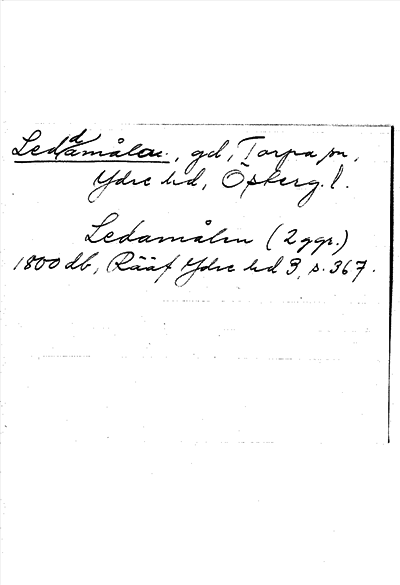 Leddamålen, gd, Torpa sn,
Ydre hd, Östergt. l.
Ledamålen (2 ggr.)
1800 db, Rääf Ydre hd 3, s. 367.